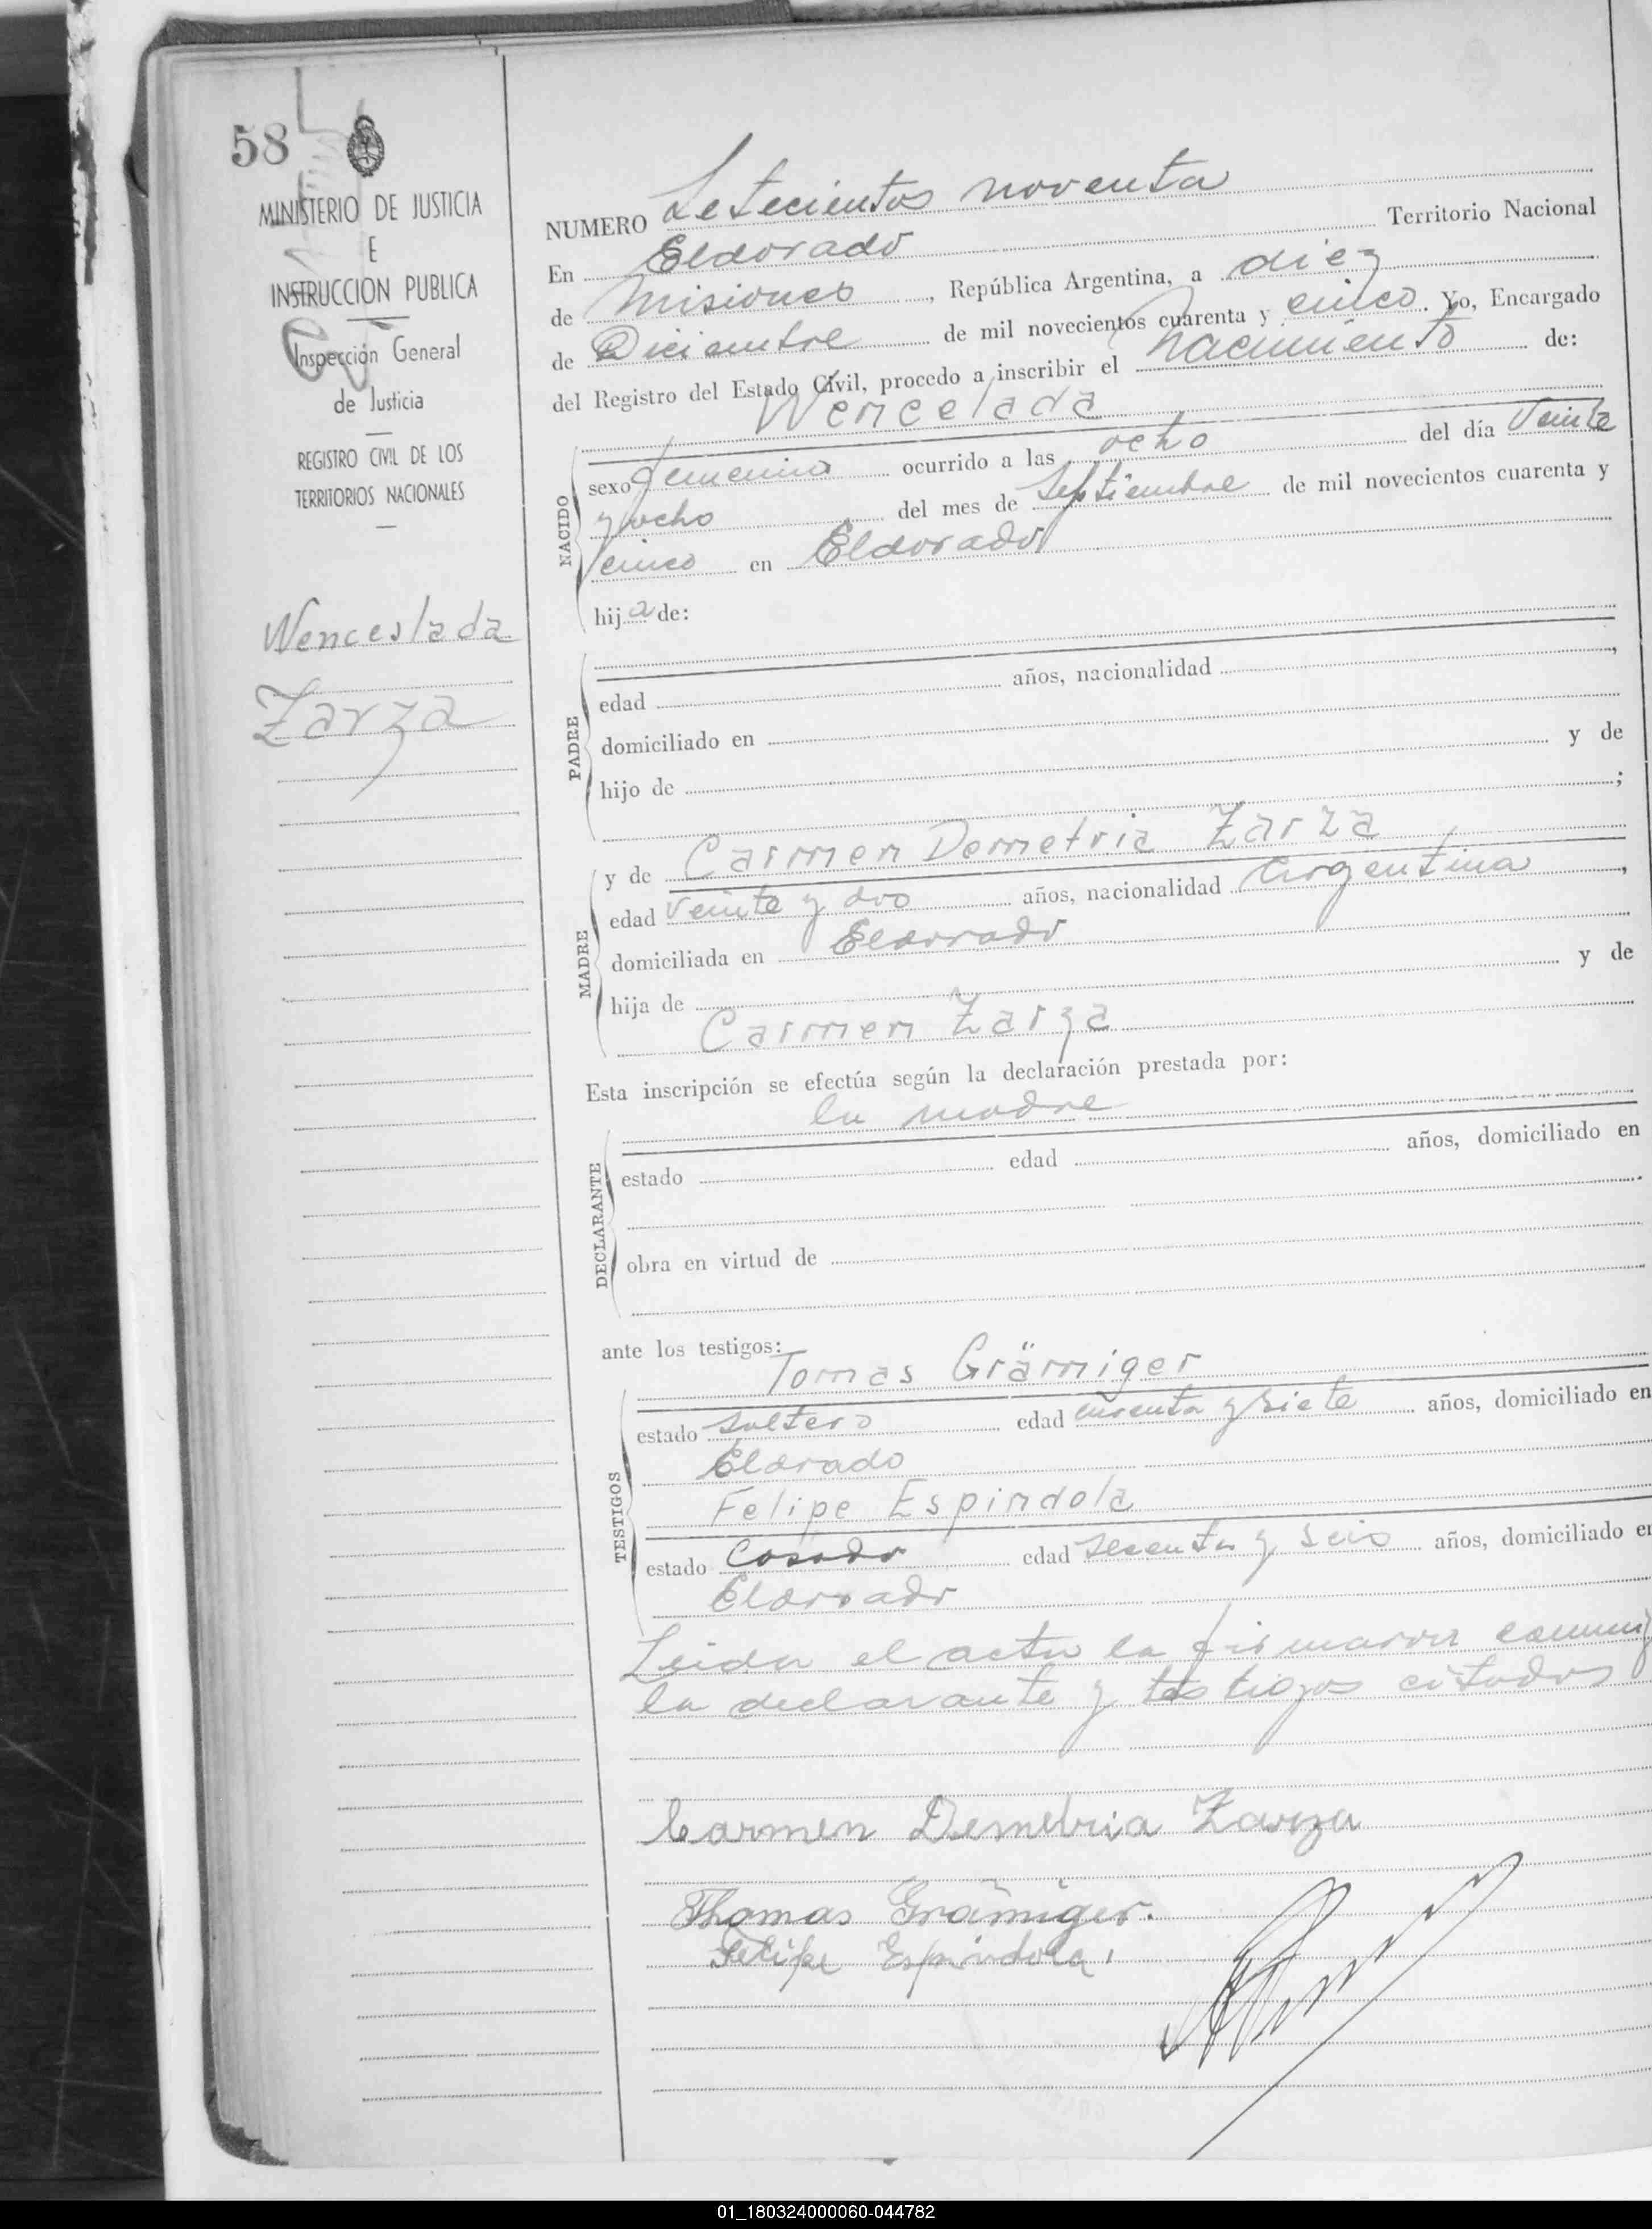 58
MINISTERIO DE JUSTICIA
E
INSTRUCCION PUBLICA
Inspección General
de Justicia
REGISTRO CIVIL DE LOS
TERRITORIOS NACIONALES
Wenceslada
Zarza
NUMERO Setecientos noventa
En Eldorado Territorio Nacional
de Misiones, República Argentina, a diez
de Diciembre de mil novecientos cuarenta y cinco. Yo, Encargado
del Registro del Estado Civil, procedo a inscribir el nacimiento de:
Wencelada
NACIDO
sexo femenino ocurrido a las ocho del día Veinte
y ocho del mes de Septiembre de mil novecientos cuarenta y
cinco en Eldorado
hija de:
PADRE
edad años, nacionalidad ,
domiciliado en
hijo de y de
;
MADRE
y de Carmen Demetria Zarza
edad veinte y dos años, nacionalidad argentina,
domiciliada en Eldorado
hija de y de
Carmen Zarza
Esta inscripción se efectúa según la declaración prestada por:
la madre
DECLARANTE
estado edad años, domiciliado en
.
obra en virtud de
ante los testigos:
TESTIGOS
Tomas Grämiger
estado soltero edad cuarenta y siete años, domiciliado en
Eldorado
Felipe Espindola
estado Casado edad sesenta y seis años, domiciliado en
Eldorado
Leida el acta la firmaron conmigo
la declarante y testigos citados
Carmen Demetria Zarza
Thomas Grämiger.
Felipe Espindola.
01_180324000060-044782